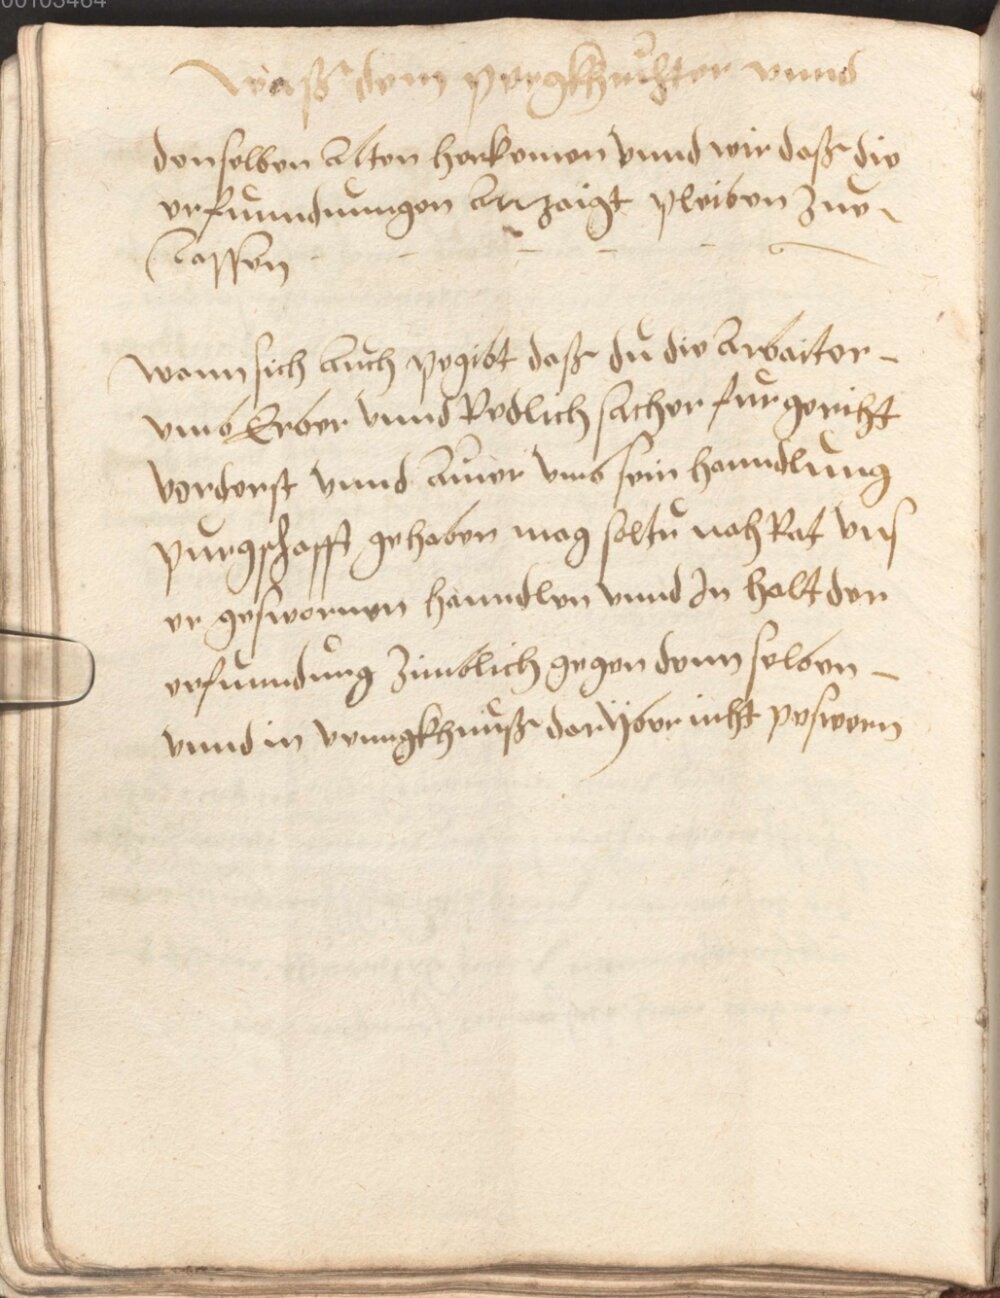 00103464
Waß dem pergkhrichter vnnd
denselben Alten herkomen vnnd wir daß die
erfunndnungen Anzaigt pleiben zue
Lassen
Wann sich Auch pegibt daß du die Arbaiter
vmb Erber vnnd Redlich sacher fur gericht
vorderst vnnd Ainer vmb sein hanndlung
purgschafft gehaben mag soltu nach Rat vns
er geswornen hanndlen vnnd In halt der
erfunndung zimblich gegen denn selben
vnnd in venngkhnuß daryber nicht peswern